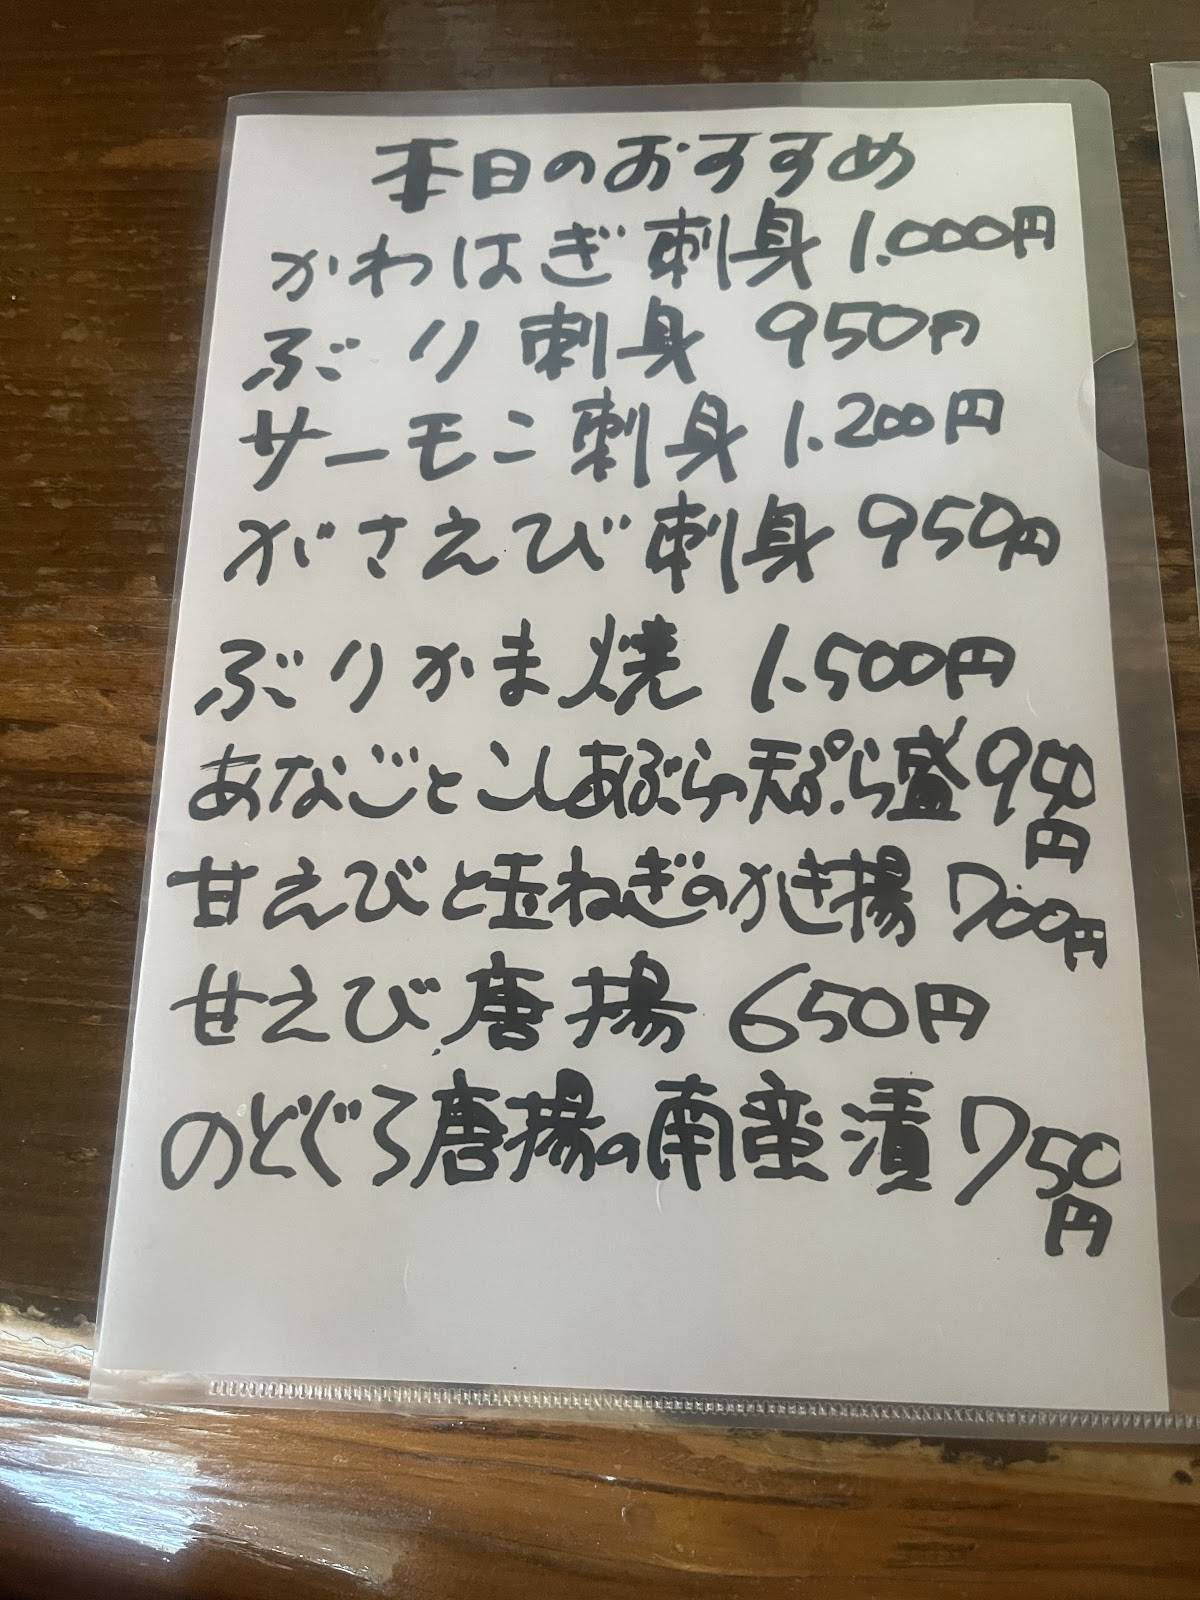 本日のおすすめ
かわはぎ刺身 1.000円
ぶり刺身 950円
サーモン刺身 1.200円
がさえび刺身 950円
ぶりかま焼 1.500円
あなごとこしあぶらの天ぷら盛 950円
甘えびと玉ねぎのかき揚 700円
甘えび唐揚 650円
のどぐろ唐揚の南蛮漬 750円